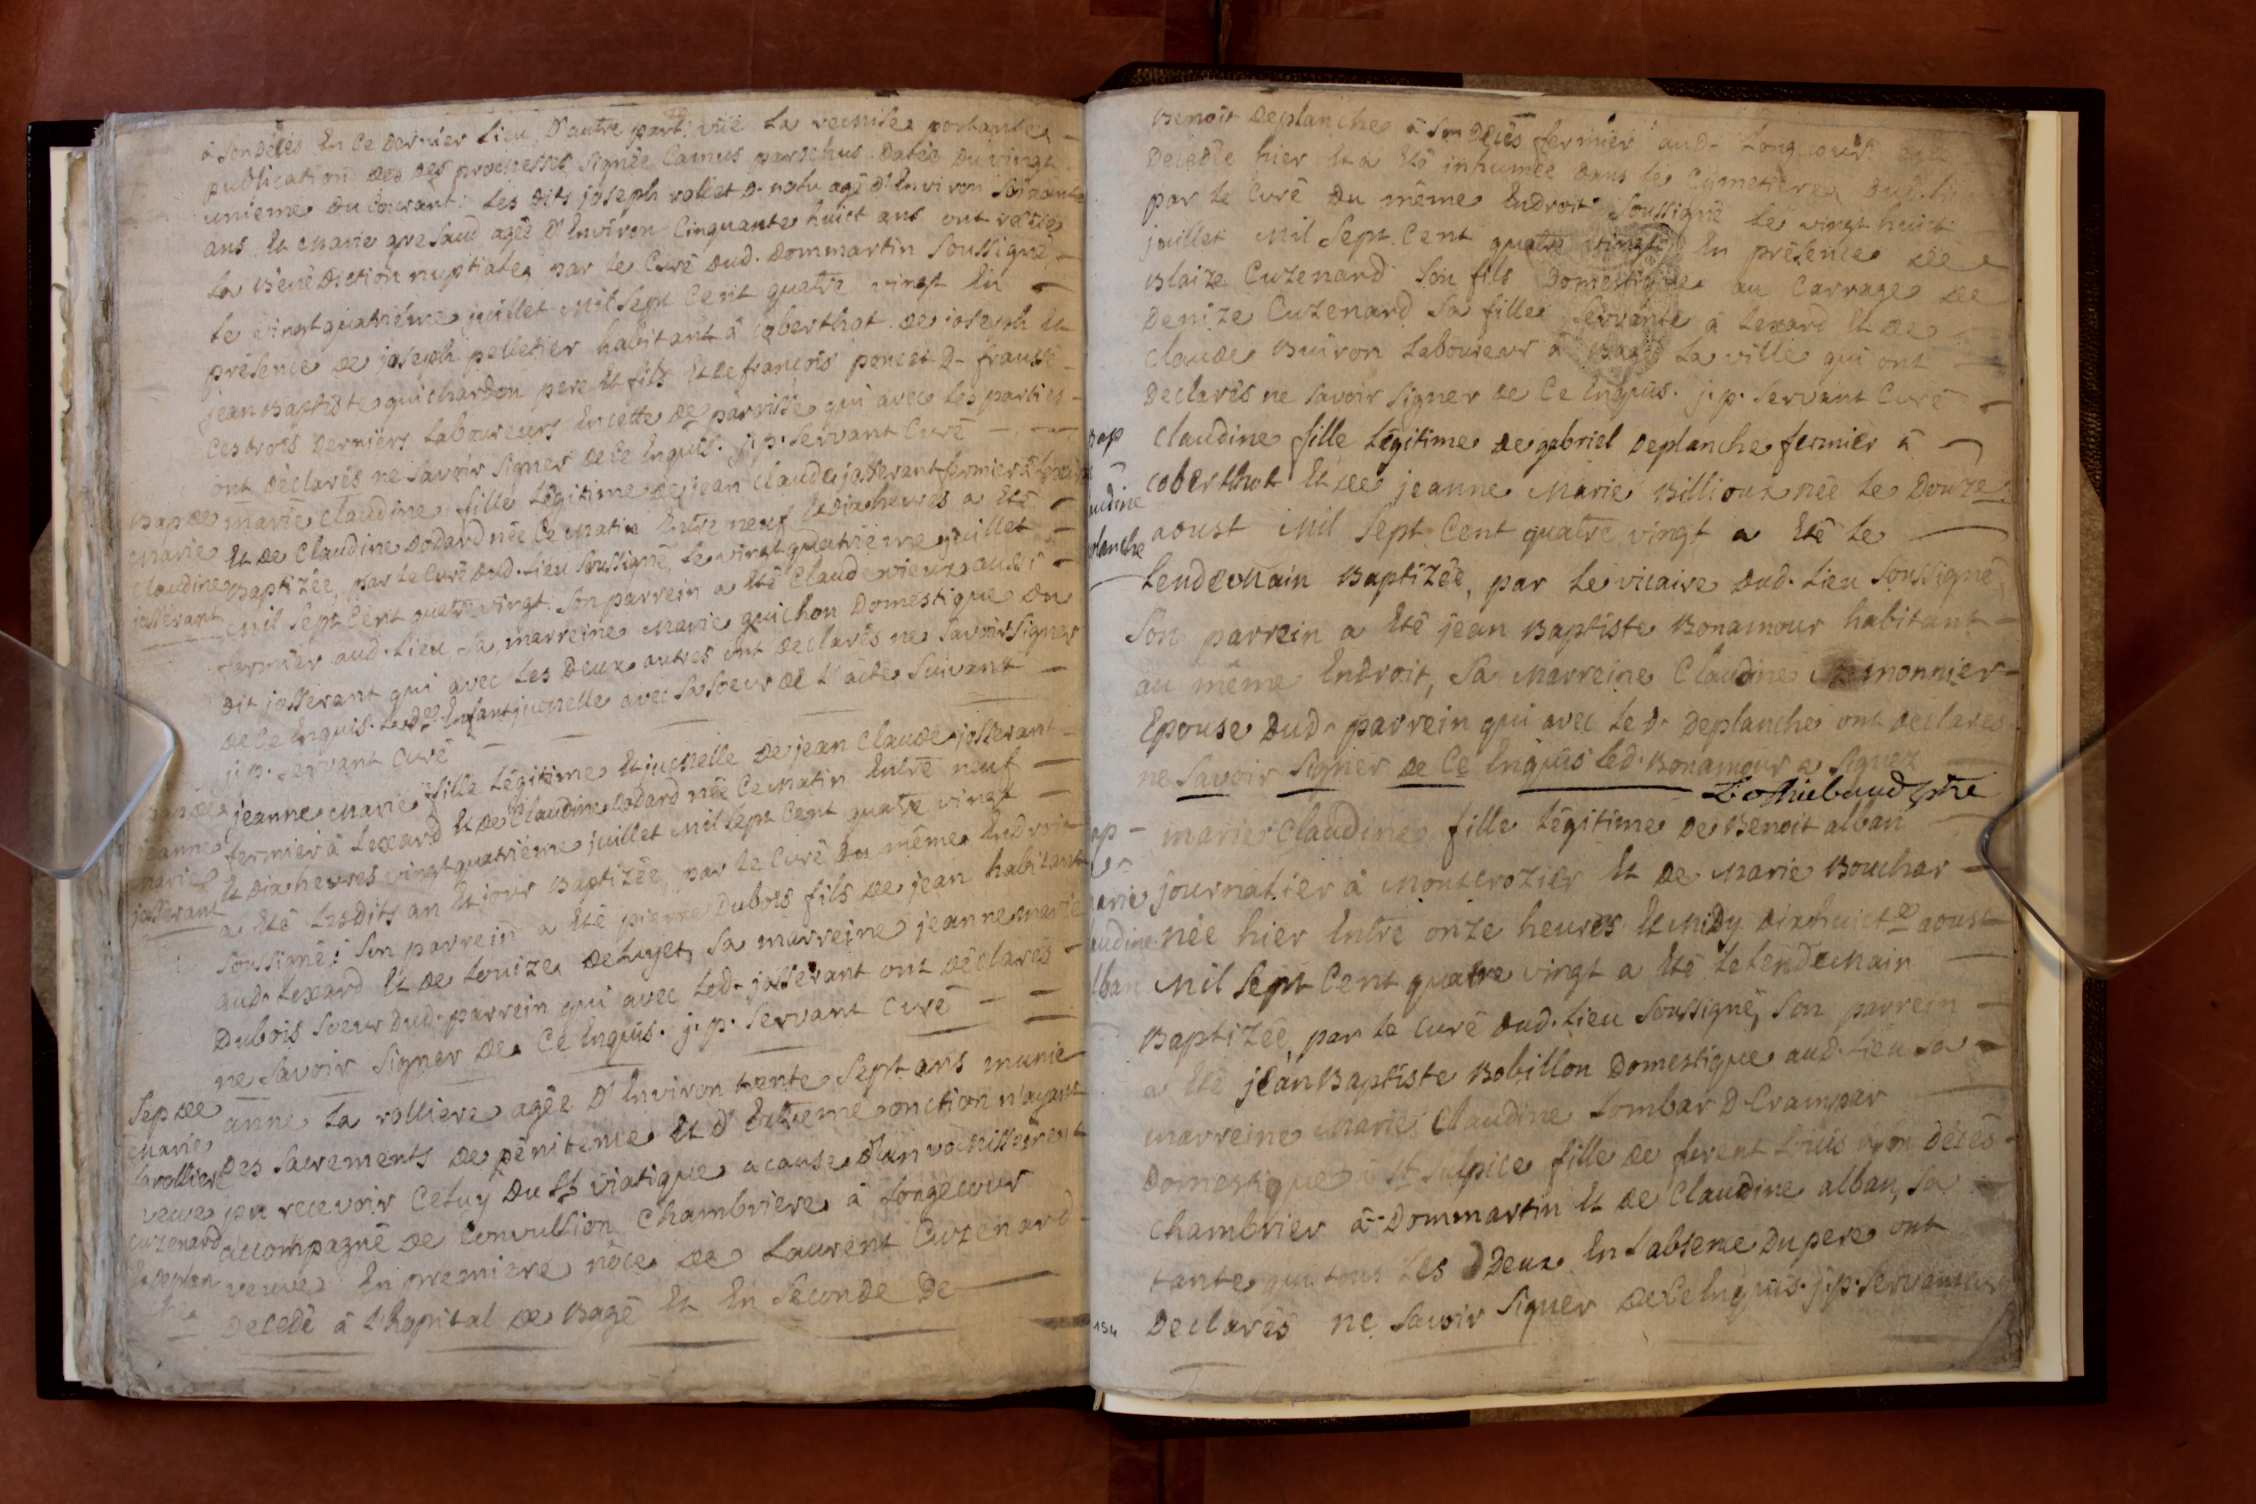 à son décès En ce dernier lieu, D'autre part; vüe La remise portante
publication des promesses signée Camus parschus. Datée Du vingt
unieme du courant: Les dits joseph rollet agé D'Environ soixante
ans Et Marie gresaud agée D'Environ Cinquante huict ans ont recüe
La Bénédiction nuptiale, par le Curé dud. Dommartin soussigné
le vingtquatriéme juillet Mil Sept Cent quatre vingt En
présence de joseph pelletier habitant à coberthot de joseph Et
jean Baptiste guichardon pere Et fils Et de françois poncet
Ces trois Derniers Laboureurs En cette parroisse qui avec Les parties
ont déclarés ne savoir signer de ce Enquis. j. p. Servant Curé
Bap de
Marie
Claudine
josserant
Marie Claudine fille Légitime de jean Claude josserant fermier à Lexard
Et de Claudine Dodard née Ce Matin Entre neuf Et dix heures a Eté
Baptizée, par le Curé dud. Lieu soussigné, le vingtquatriéme juillet
Mil Sept Cent quatrevingt. Son parrein a Eté Claude vieux aussi
fermier aud. Lieu, sa marreine Marie guichon Domestique du
dit josserant qui avec Les Deux autres ont déclarés ne savoir signer
de ce Enquis. Led. Enfant jumelle avec sa soeur de L'acte suivant
j. p. Servant Curé
jeanne
marie
josserant
jeanne Marie fille Légitime Et jumelle de jean Claude josserant
fermier à Lexard Et de Claudine Dodard née Ce Matin Entre neuf
Et dix heures vingtquatriéme juillet Mil Sept Cent quatre vingt
a Eté Lesdits an Et jour Baptizée, par le Curé du même Endroit
soussigné: Son parrein a Eté pierre Dubois fils de jean habitant
aud. Lexard Et de Louize Deluyet, sa marreine jeanne marie
Dubois soeur dud. parrein qui avec Led. josserant ont déclarés
ne savoir signer de Ce Enquis. j. p. Servant Curé
Sep de
Marie
Larolliere
veuve
Cuzenard
anne La rolliere agée D'Environ trente Sept ans munie
Des Sacrements de pénitence Et D'Extreme onction n'ayant
pu recevoir Celuy Du St viatique a cause d'un vomissement
accompagné de Convultion Chambriere à Longecour
veuve En premiere nôce de Laurent Cuzenard
Decedé à L'hopital de Bagé Et En Seconde De
Benoit Deplanche à Son Décès fermier aud. Longecour
Décédée hier Et a Eté inhumée Dans le Cymetiere
par le Curé Du même Endroit Soussigné Le vingt huict
juillet Mil Sept Cent quatre vingt, En présence de
Blaize Cuzenard Son fils Domestique au Carrage de
Denize Cuzenard Sa fille Servante à Lexard Et de
Claude Buiron Laboureur à Bagé La ville qui ont
Declarés ne savoir signer de Ce Enquis. j. p. Servant Curé
Bap
udine
planche
Claudine fille Légitime de gabriel Deplanche fermier à
coberthot Et de jeanne Marie Billioux née Le Douze
aoust Mil Sept Cent quatre vingt a Eté Le
Lendemain Baptizée, par Le vicaire dud. Lieu Soussigné,
Son parrein a Eté jean Baptiste Bonamour habitant
au même Endroit, Sa Marreine Claudine monnier
Epouse Dud. parrein qui avec Le d. Deplanche ont déclarés
ne Savoir Signer de Ce Enquis Led. Bonamour a Signez
Thiebaud ptre
ap
arie
udine
lban
marie Claudine fille Légitime de Benoit alban
journalier à Montcrozier Et de Marie Bouchar
née hier Entre onze heures Et Midy dixhuict aoust
Mil Sept Cent quatre vingt a Eté Le Lendemain
Baptizée, par le Curé dud. Lieu Soussigné, Son parrein
a Eté jean Baptiste Bobillon Domestique aud. Lieu Sa
marreine Marie Claudine Lombar D Crampar
Domestique à St Sulpice fille de Louis à Son décés
chambrier à Dommartin Et de Claudine alban, Sa
tante qui tous Les Deux En L'absence Du pere ont
Declarés ne Savoir Signer de Ce Enquis. j. p. Servant Curé
154